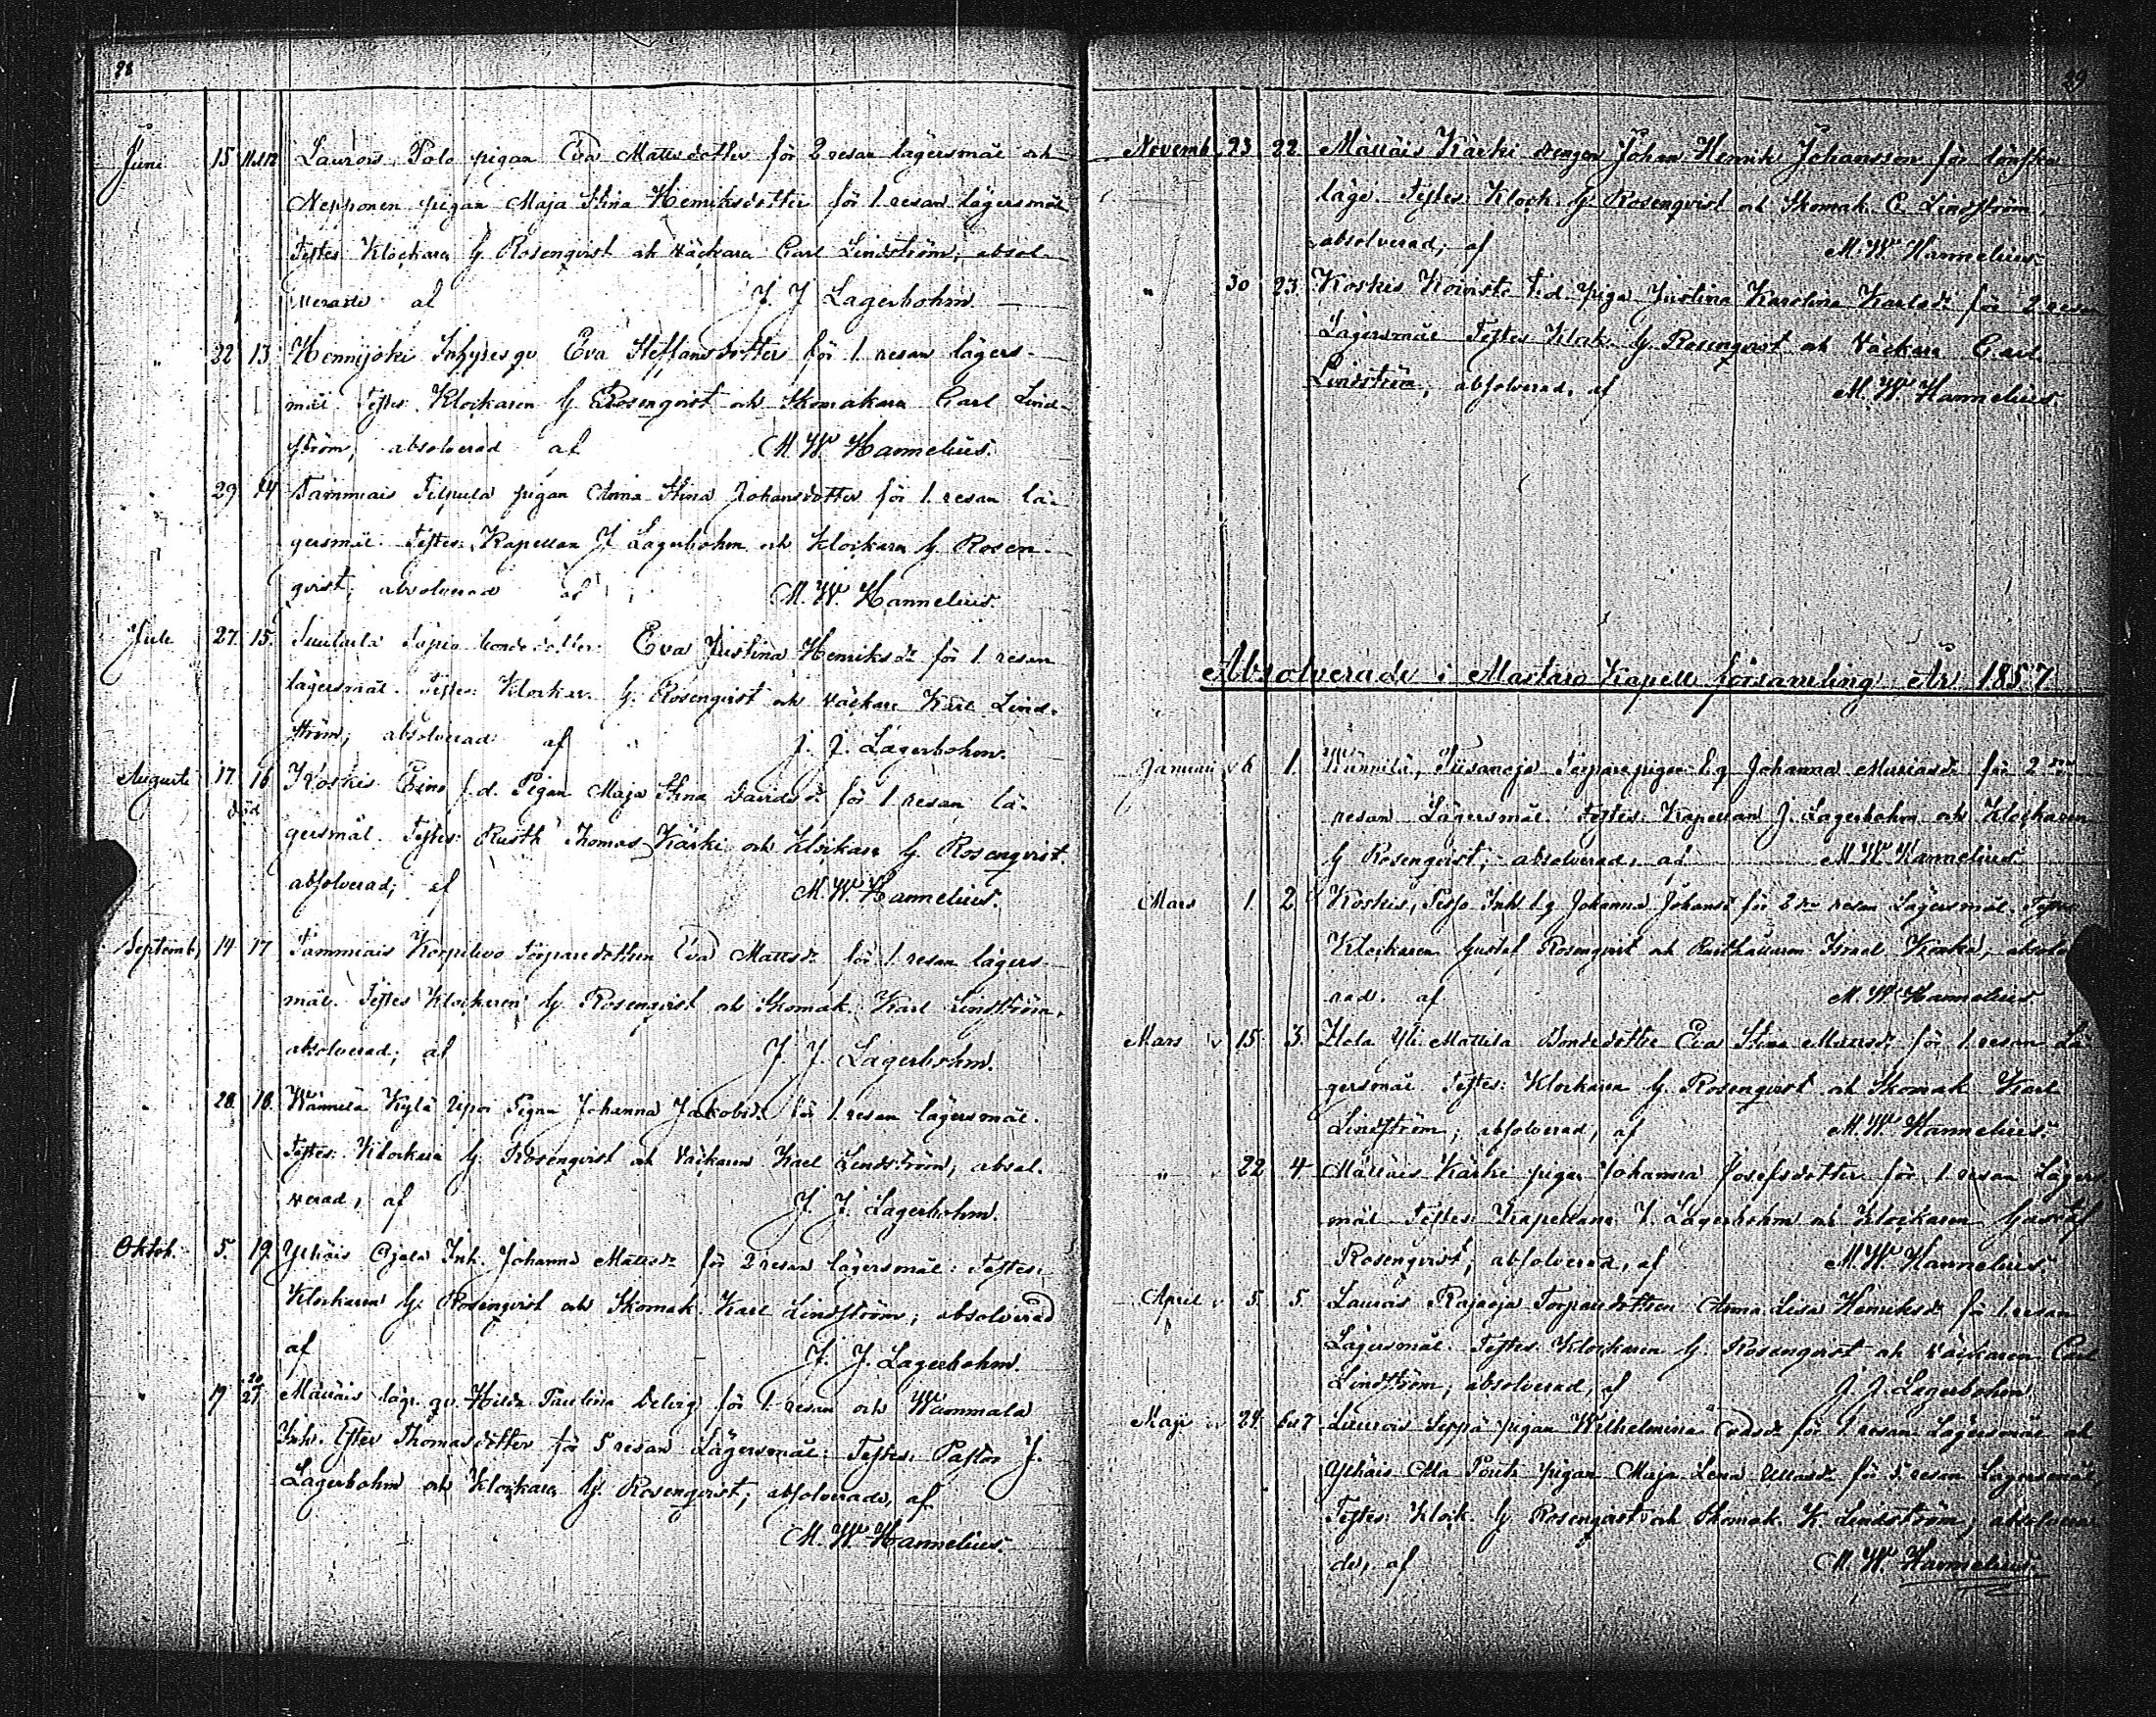 28
Juni 15 11 o 12 Laurois, Palo pigan Eva Mattsdotter för 2 resan lägersmål och
Nepponen pigan Maja Stina Henriksdotter för 1 resan lägersmål
Testes Klockaren G. Rosenqvist och Väckare Carl Lindström, absol-
verade af J. J. Lagerbohm.
" 22 13. Hennijoki Inhyses qv. Eva Steffansdotter för 1 resan lägers-
mål. Testes: Klockaren G Rosenqvist och Skomakare Carl Lind-
ström, absolverad af M. W. Hannelius.
" 29 14 Tammiais Tilpula pigan Anna Stina Johansdotter för 1. resan lä-
gersmål. Testes: Kapellan J. Lagerbohm och Klockaren G. Rosen-
qvist; absolverad af M. W. Hannelius.
Juli 27. 15. Suutarla Bondedotter Eva Justina Henriksdr för 1. resan
lägersmål. Testes: Klockar. G. Rosenqvist och Väckare Karl Lind-
ström; absolverad af J. J. Lagerbohm.
Augusti 17. 16 Koskis Eino f.d. Pigan Maja Stina Davidsdr för 1 resan lä-
död
gersmål. Testes: Rusth. Thomas Kärki och Klockare G Rosenqvist
absolverad; af M. W. Hannelius.
Septemb. 14 17 Tammiais Korpilevo Torparedottren Eva Mattsdr för 1. resan lägers-
mål. Testes Klockaren G. Rosenqvist och Skomak. Karl Lindström,
absolverad; af J. J. Lagerbohm.
" 28. 18. Wännilä Kylä Pigan Johanna Jakobsdr för 1 resan lägersmål.
Testes: Klockare G. Rosenqvist och Väckaren Karl Lindström, absol-
verad, af J. J. Lagerbohm.
Oktob. 5. 19. Ythäis Ojala Inh. Johanna Mattsdr för 2 resan lägersmål: Testes:
Klockaren G. Rosenqvist och Skomak. Karl Lindström; absolverad
af J. J. Lagerbohm.
" 19 20 21 Mälläis lägr. qv. Hilda Paulina för 1. resan och Wammala
Inh. Ester Thomasdotter för 5 resan Lägersmål: Testes: Pastor J.
Lagerbohm och Klockare G. Rosenqvist; absolverade, af
M. W. Hannelius.
29
Novemb. 23 22 Mälläis Kärki drengen Johan Henrik Johansson för lönska
läge. Testes Klock. G. Rosenqvist och Skomak. C. Lindström,
absolverad; af M. W. Hannelius.
" 30 23. Koskis Koivisto f.d. piga Justina Karolina Karlsdr för 2 resan
Lägersmål Testes Klock. G. Rosenqvist och Väckare Carl
Lindström; absolverad, af M. W. Hannelius
Absolverade i Mastaro Kapell församling År 1857.
Januari 6 1. Wännilä, Tiisanoja Torpare pigan l.q Johanna för 2dra
resan Lägersmål. Testes: Kapellan J. Lagerbohm och Klockaren
G Rosenqvist; absolverad, af M. W. Hannelius
Mars 1. 2. Koskis, Seppo Inh. l.q Johanna Johansdr för 2dra resan Lägersmål. Testes
Klockaren Gustaf Rosenqvist och Rusthållaren Israel absolve
rad. af M. W. Hannelius
Mars 15. 3. Hela Yli Mattila Bondedotter Eva Stina Mattsdr för 1. resan Lä
gersmål Testes: Klockaren G. Rosenqvist och Skomak Karl
Lindström; absolverad, af M. W. Hannelius.
" 22 4 Mällais Kärki pigan Johanna Josefsdotter för 1 resan Lägers
mål Testes: Kapellanen J. Lagerbohm och Klockaren Gustaf
Rosenqvist; absolverad, af M. W. Hannelius
April 5. 5. Laurois Rajaoja Torparedottren Anna Lisa Henriksdr för 1. resan
Lägersmål. Testes Klockaren G. Rosenqvist och Väckaren Carl
Lindström; absolverad, af J. J. Lagerbohm
Maji 24. 6 o 7 Laurois Seppä pigan Wilhelmina för 1 resan Lägersmål och
Ythäis Ala Pouti pigan Maja Lena för 5. resan Lägersmål,
Testes: Klock. G Rosenqvist och Skomak. K. Lindström; absolvera
de, af M. W. Hannelius.